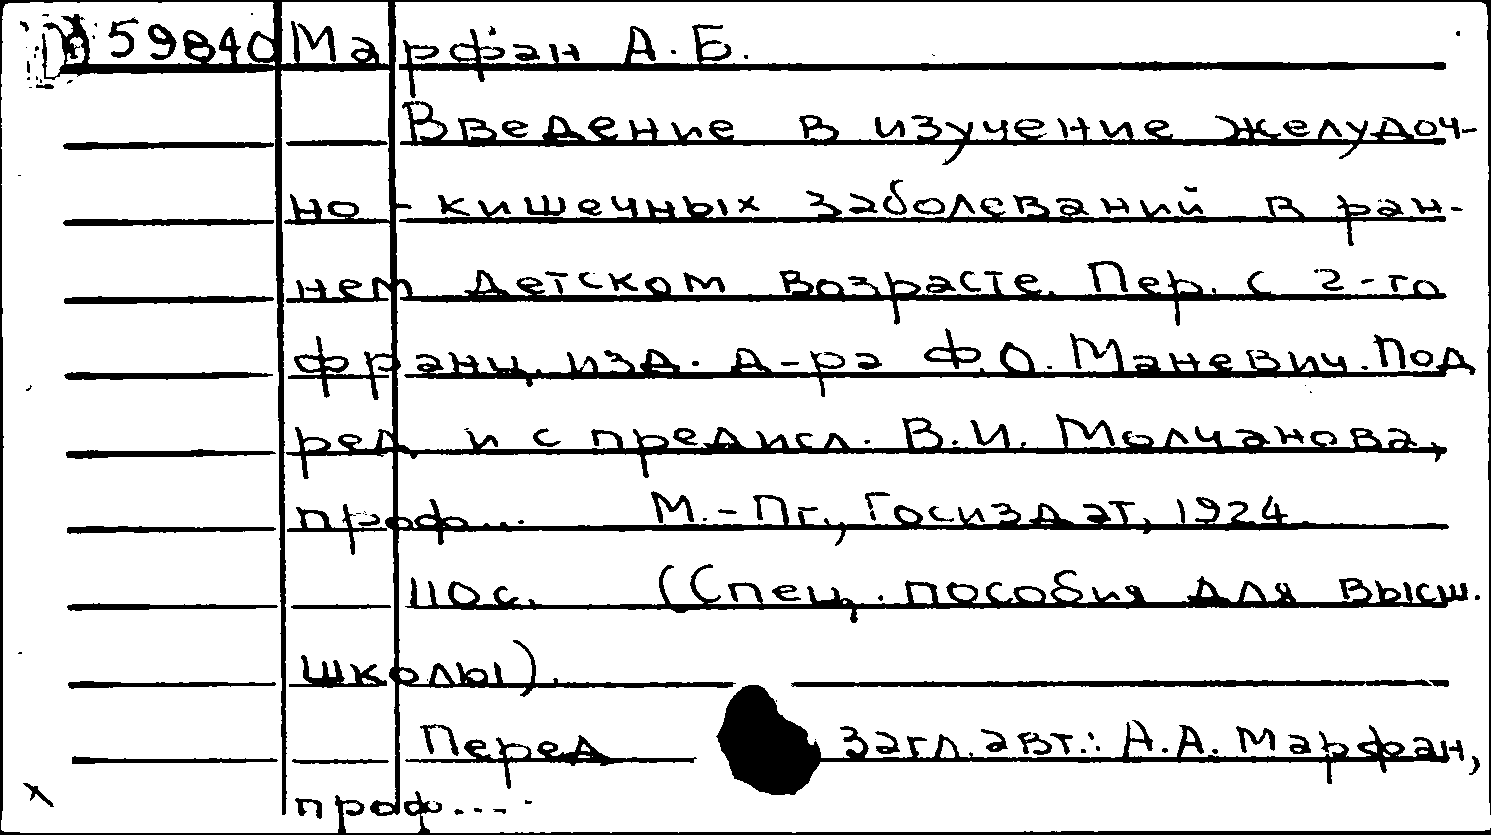 59840 Марфан А.Б.
Введение в изучение желудоч-
но-кишечных заболеваний в ран-
нем детском возрасте. Пер. с 2-го
франц. изд. д-ра Ф.О. Маневич. Под
ред. и с предисл. В.И. Молчанова,
проф... М.-Пг., Госиздат, 1924.
110 с. (Спец. пособия для высш.
школы).
Перед загл. авт.: А.А. Марфан,
проф....